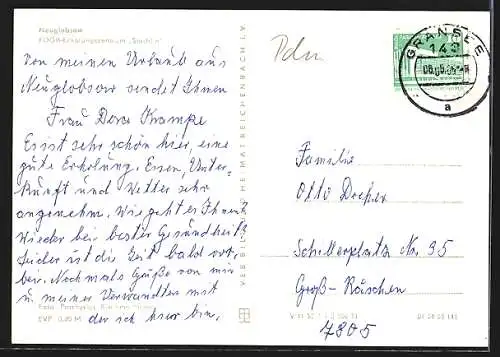 Neuglobsow
FDGB-Erholungszentrum „Stechlin“
Von meinen Urlaub aus
Neuglobsow sendet Ihnen
Frau Dora Krampe
Es ist sehr schön hier, eine
gute Erholung. Essen, Unter-
kunft und Wetter sehr
angenehm. Wie geht es Ihnen?
Wieder bei bester Gesundheit?
Leider ist die Zeit bald vor-
bei. Nochmals Grüße von mir
u. meiner Verwandten mit
der ich hier bin.
Foto:
EVP 0,20 M
VEB BILD UND HEIMAT REICHENBACH I.V.
Pdm
GRANSEE
143
a
Familie
Otto
Schillerplatz Nr. 35
Groß-Räschen
7805